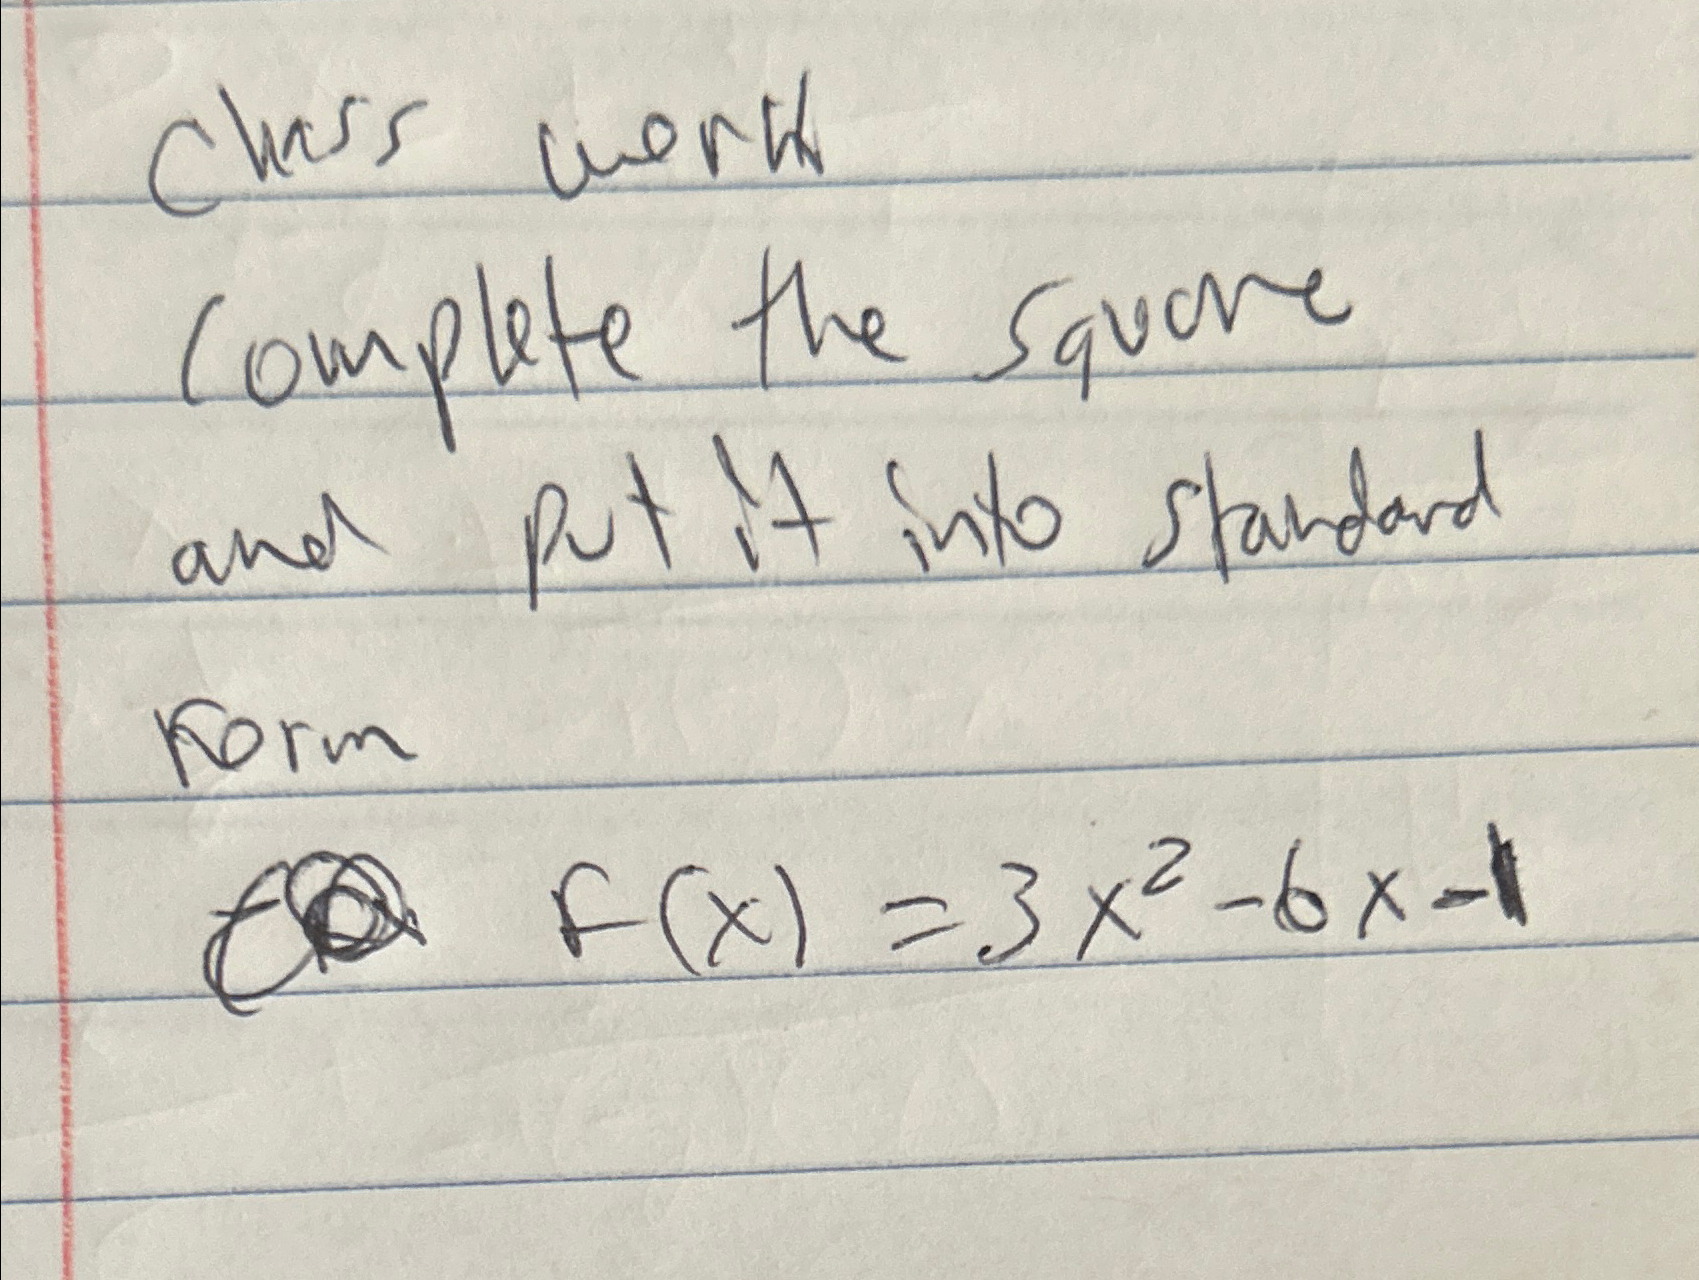 Class work
Complete the square
and put it into standard
Form
F(x) = 3x² - 6x - 1